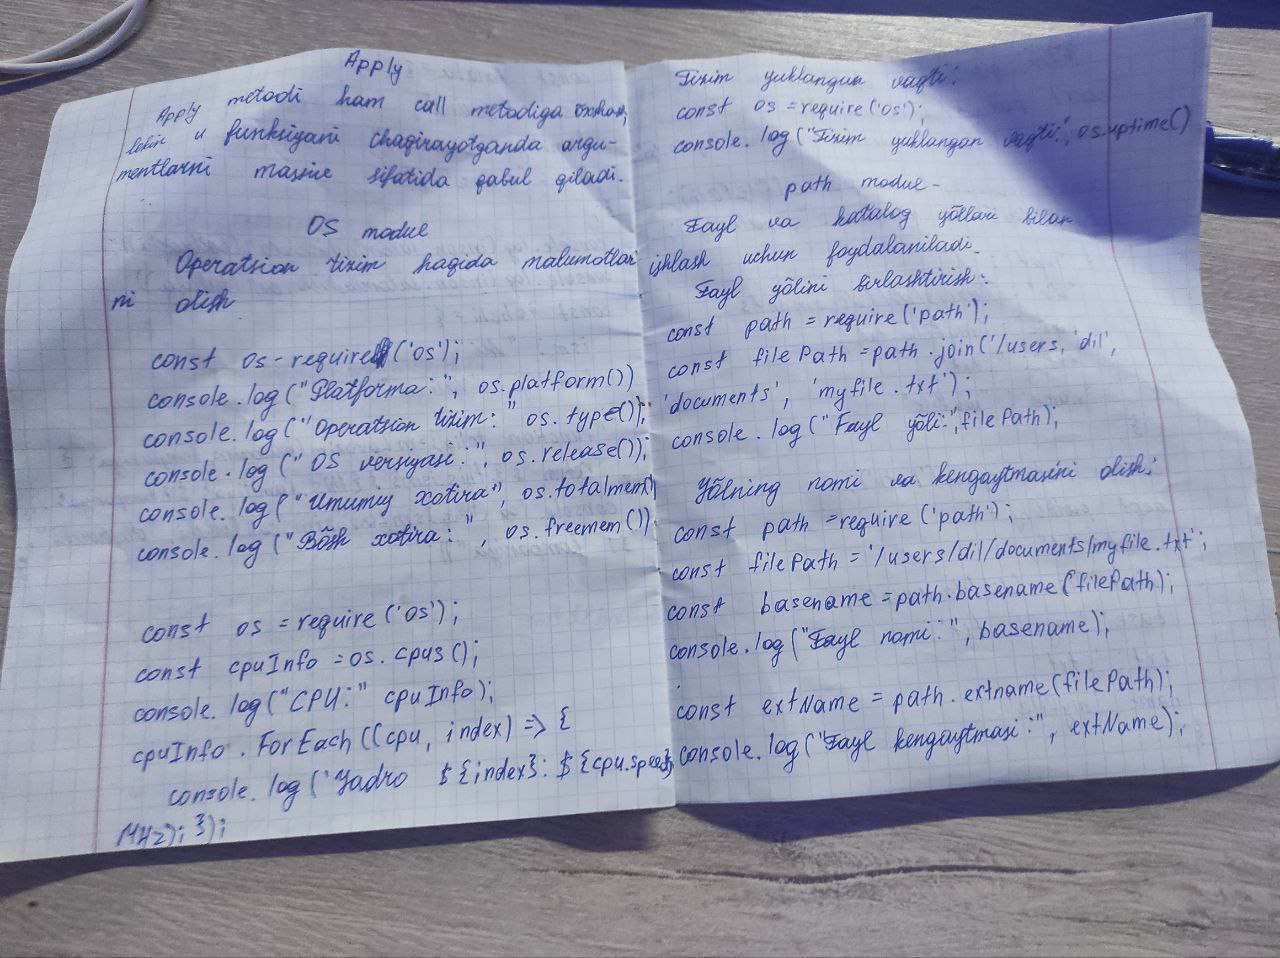 Apply
Apply metodi ham call metodiga õxshar,
lekin u funksiyani chaqirayotganda argu-
mentlarni massiv sifatida qabul qiladi.
OS modul
Operatsion tizim haqida malumotlar
ni olish
const os - require('os');
console.log("Platforma:", os.platform())
console.log("Operatsion tizim:" os.type());
console.log("OS versiyasi:", os.release());
console.log("Umumiy xotira", os.totalmem()
console.log("Bõsh xotira:", os.freemem())
const os = require('os');
const cpuInfo = os.cpus();
console.log("CPU:" cpuInfo);
cpuInfo.ForEach((cpu, index) => {
console.log('Yadro ${index}: ${cpu.speed}
MHz); });
Tizim yuklangan vaqti:
const os = require('os');
console.log("Tizim yuklangan vaqti:", os.uptime()
path modul -
Fayl va katalog yõllari bilan
ishlash uchun foydalaniladi.
Fayl yõlini birlashtirish:
const path = require('path');
const filePath = path.join('/users, 'dil',
'documents', 'myfile.txt');
console.log("Fayl yõli:", filePath);
Yõlning nomi va kengaytmasini olish:
const path = require('path');
const filePath = '/users/dil/documents/myfile.txt';
const basename = path.basename('filePath);
console.log("Fayl nomi:", basename);
const extName = path.extname(filePath);
console.log("Fayl kengaytmasi:", extName);